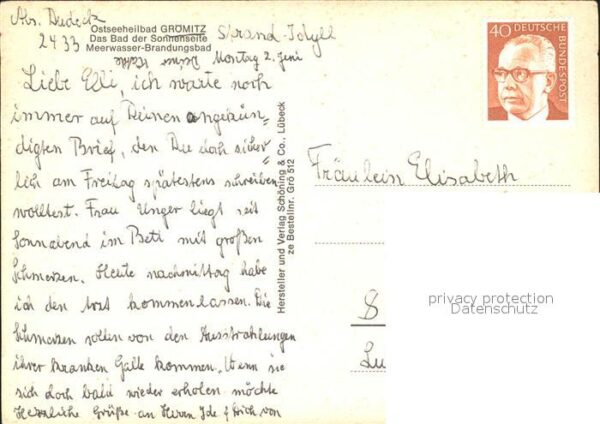 Abs. Dudeck
Ostseeheilbad GRÖMITZ
Das Bad der Sonnenseite
Meerwasser-Brandungsbad
2433
Strand-Idyll
Montag 2. Juni
Deine
Liebe Elli, ich warte noch
immer auf Deinen angekün=
digten Brief, den Du doch sicher=
lich am Freitag spätestens schreiben
wolltest. Frau Unger liegt seit
Sonnabend im Bett mit großen
Schmerzen. Heute nachmittag habe
ich den Arzt kommen lassen. Die
Schmerzen sollen von den Ausstrahlungen
ihrer kranken Galle kommen. Wenn sie
sich doch bald wieder erholen möchte
Herzliche Grüße an Herrn Ide & Dich von
Hersteller und Verlag Schöning & Co., Lübeck
ze Bestellnr. Grö 512
40 DEUTSCHE
BUNDESPOST
Fräulein Elisabeth
8
privacy protection
Datenschutz